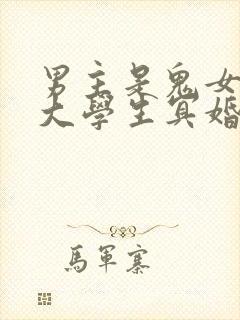 男主是鬼女
大學生冥婚
馬軍寨